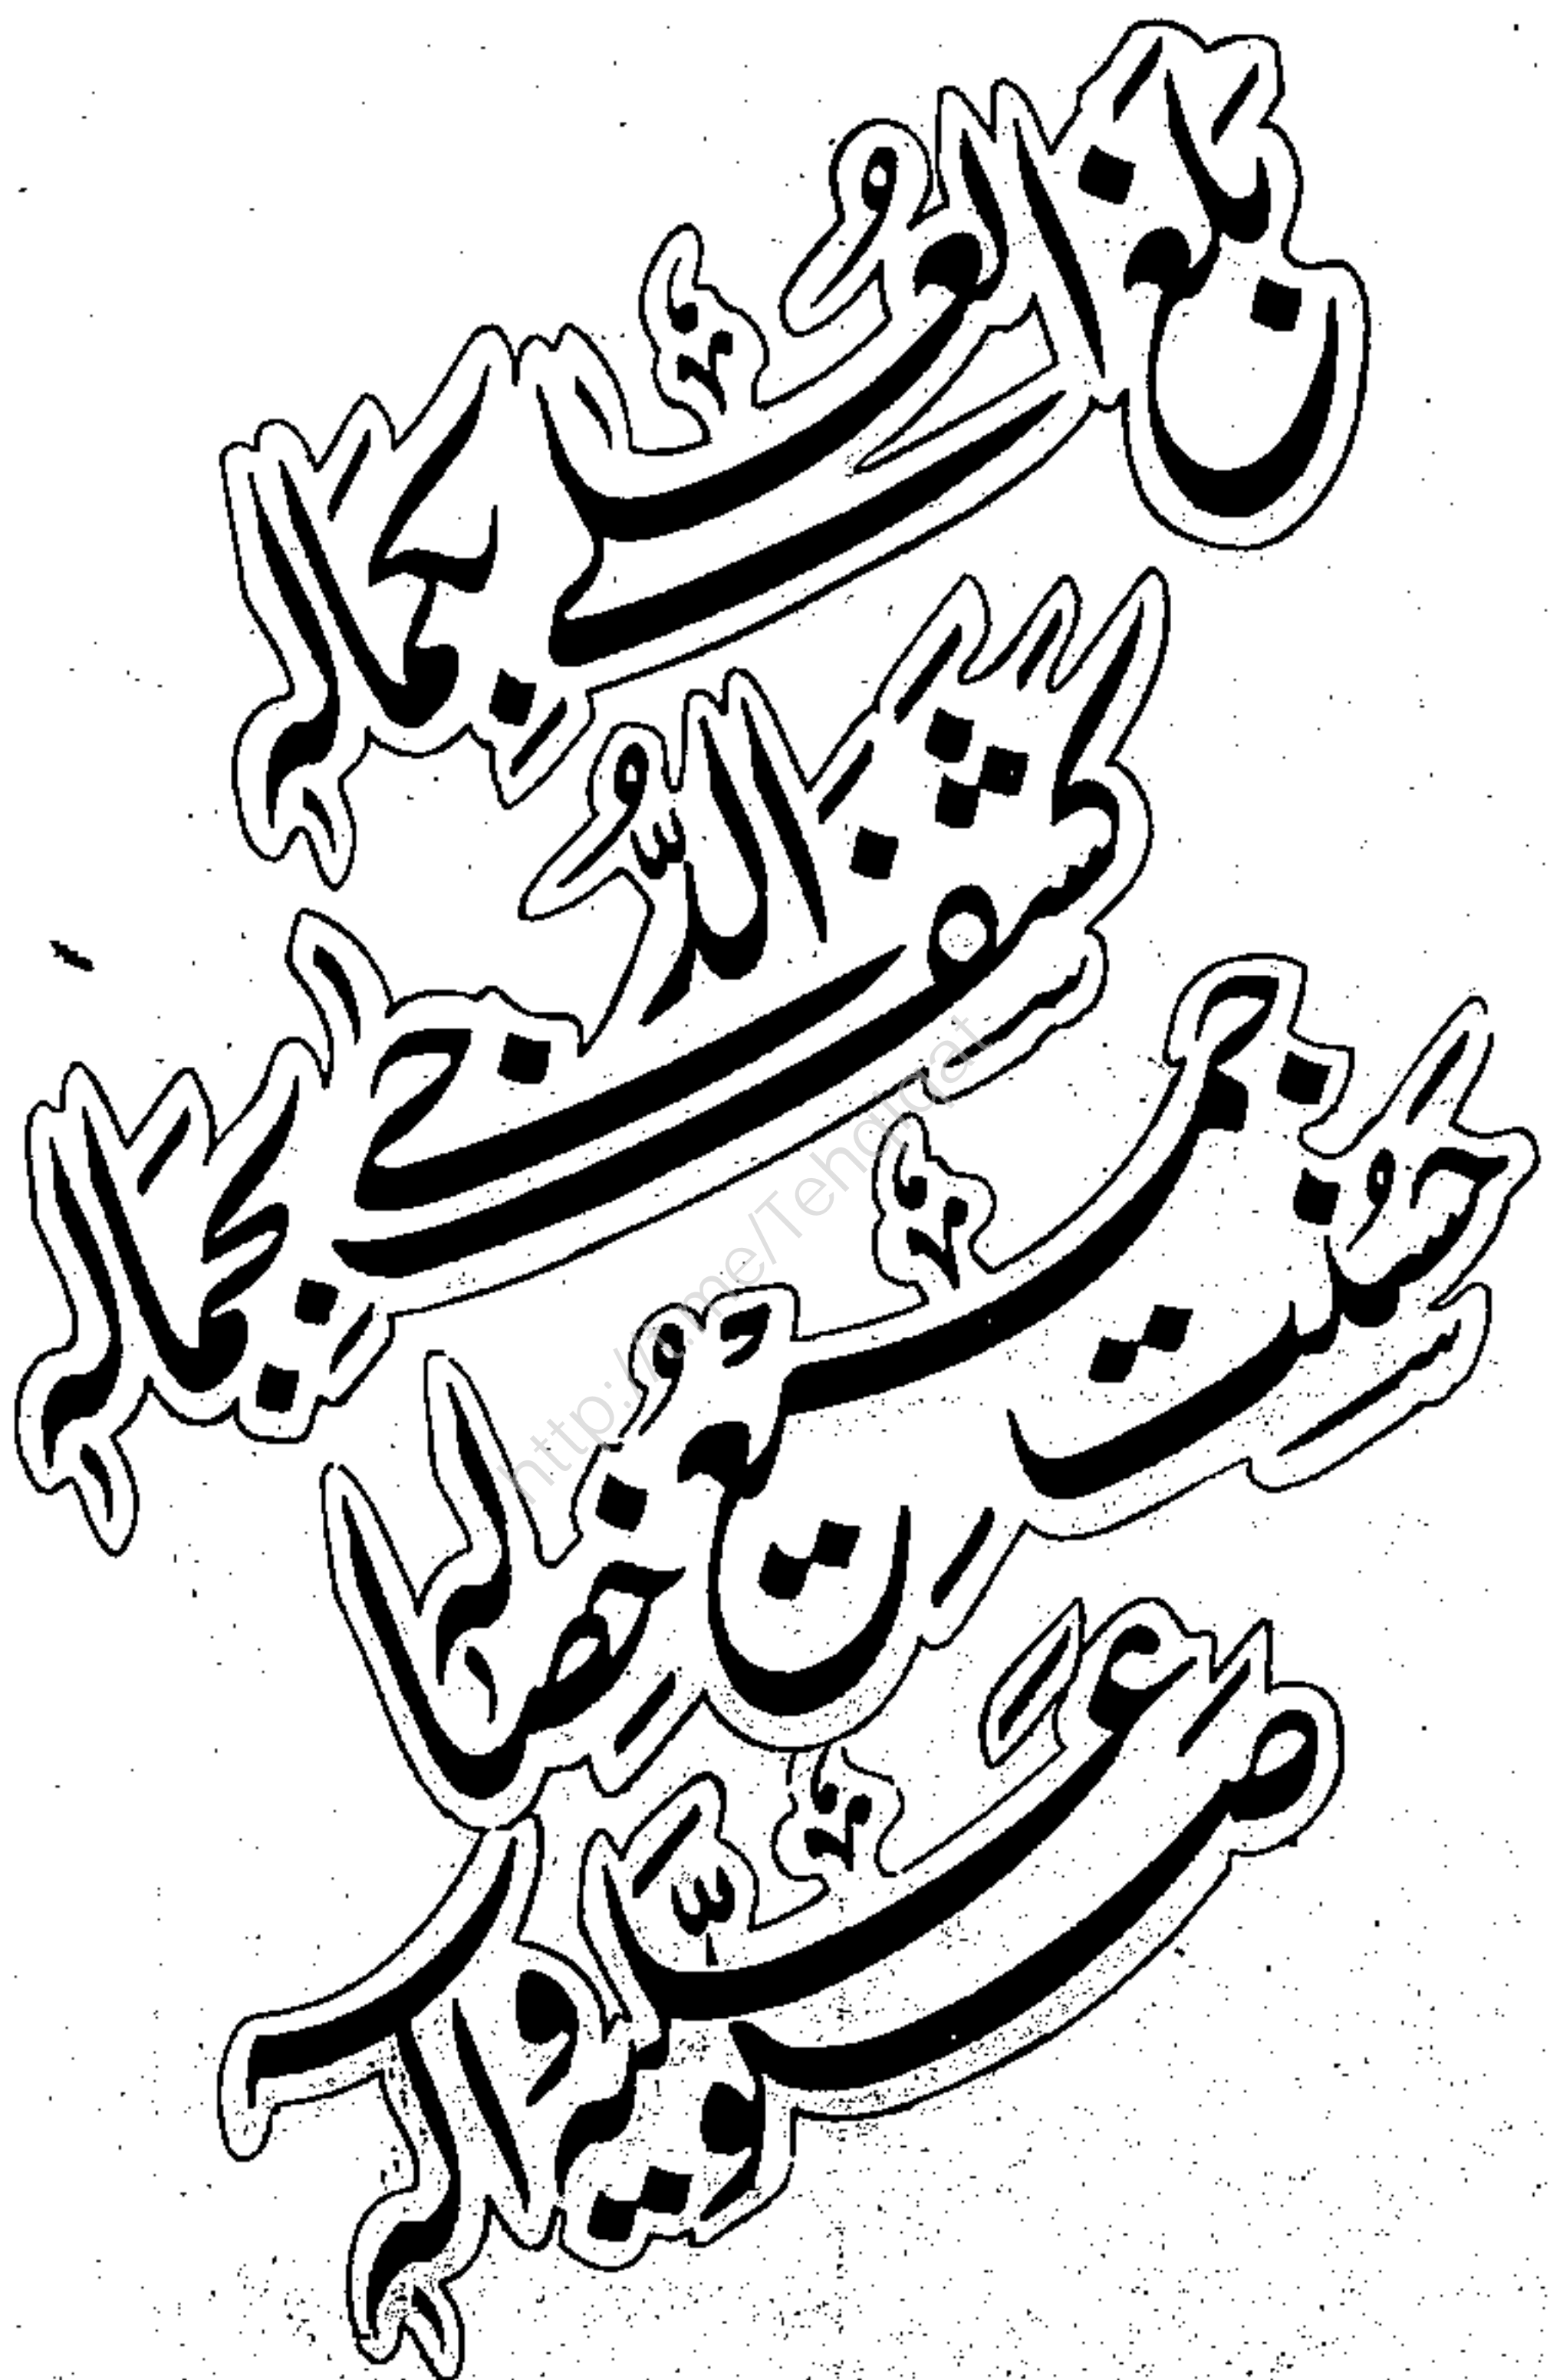 بلغ العلیٰ بکمالہٖ
کشف الدجیٰ بجمالہٖ
حسنت جمیع خصالہٖ
صلوا علیہ وآلہٖ
http://t.me/Tehqiqat